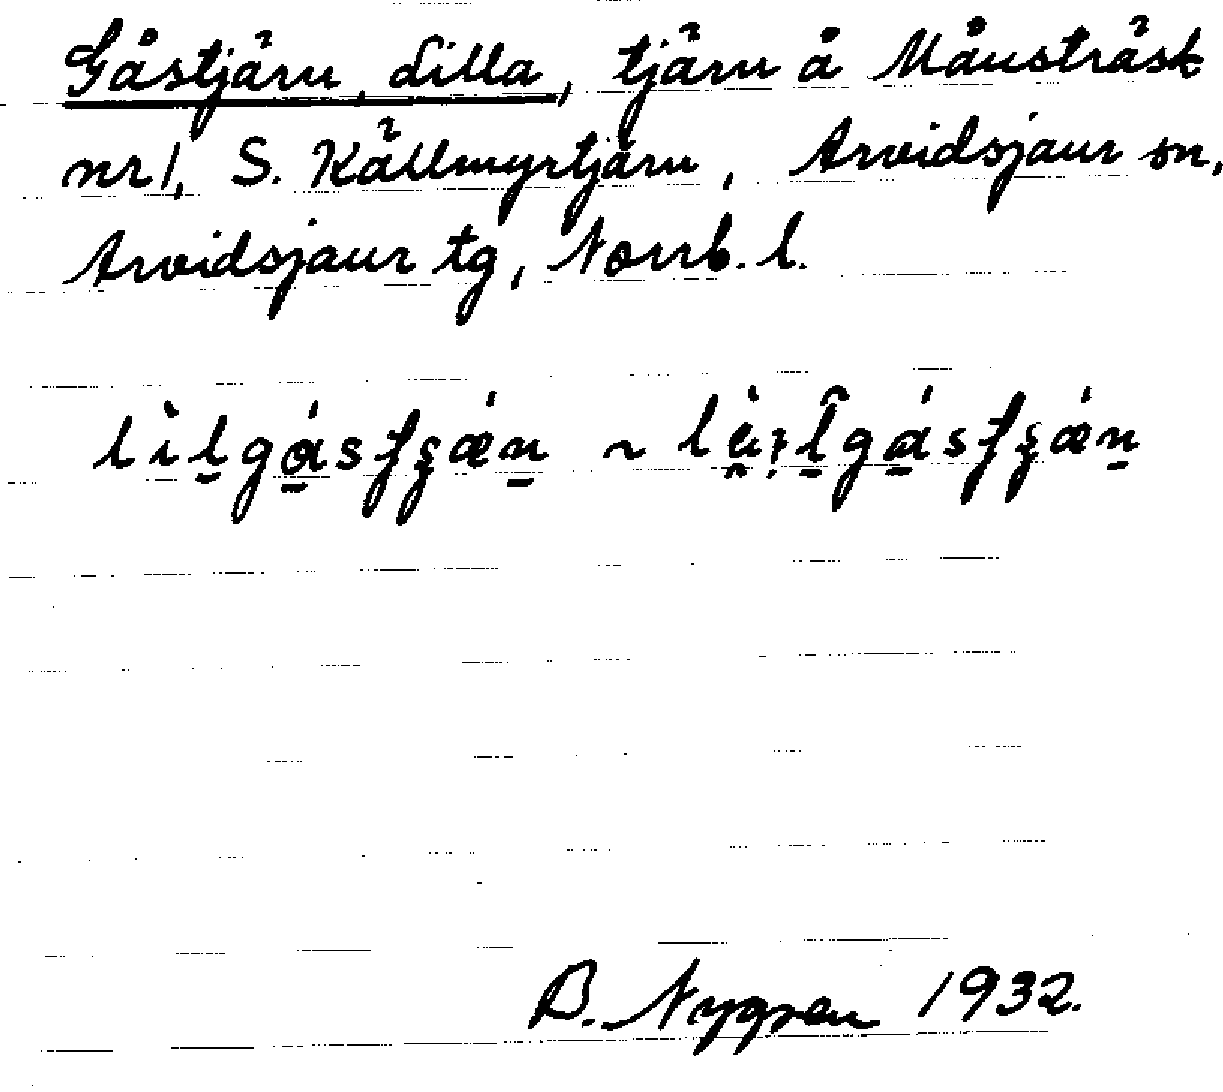 Gåstjärn, Lilla, tjärn å Månsträsk
nr 1, S. Källmyrtjärn, Arvidsjaur sn,
Arvidsjaur tg, Norrb. l.
B. Nygren 1932.